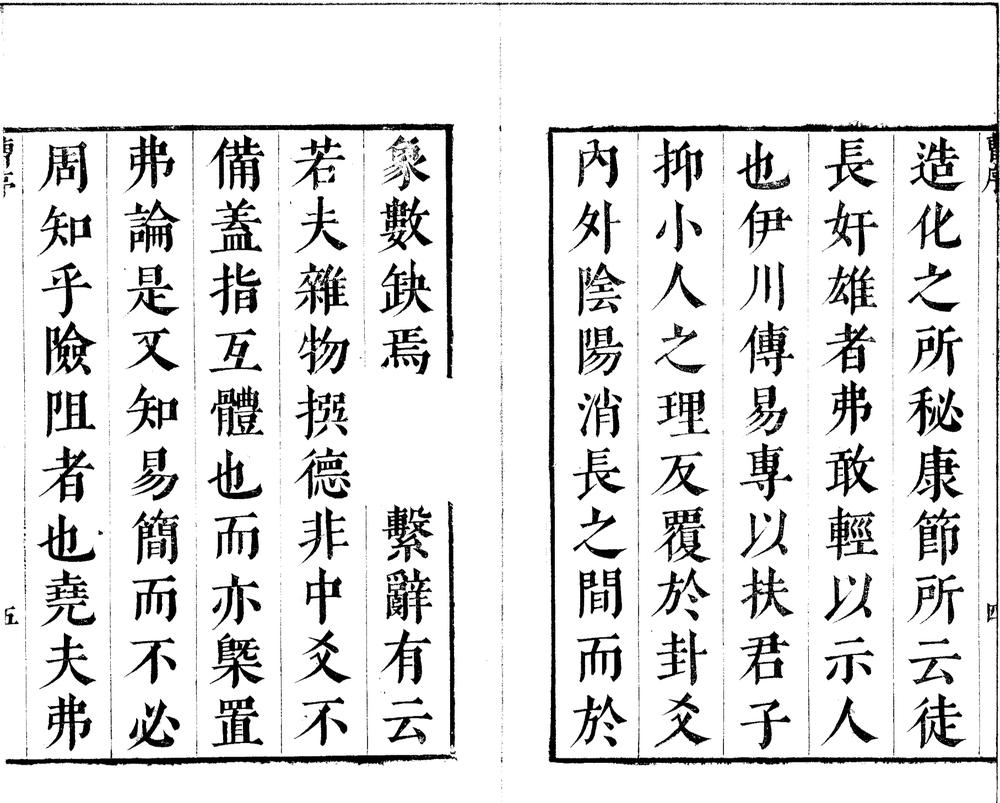 造化之所秘康節所云徒
長奸雄者弗敢輕以示人
也伊川傳易專以扶君子
抑小人之理反覆於卦爻
內外陰陽消長之間而於
四
象數缺焉 繫辭有云
若夫雜物撰德非中爻不
備蓋指互體也而亦槩置
弗論是又知易簡而不必
周知乎險阻者也堯夫弗
五